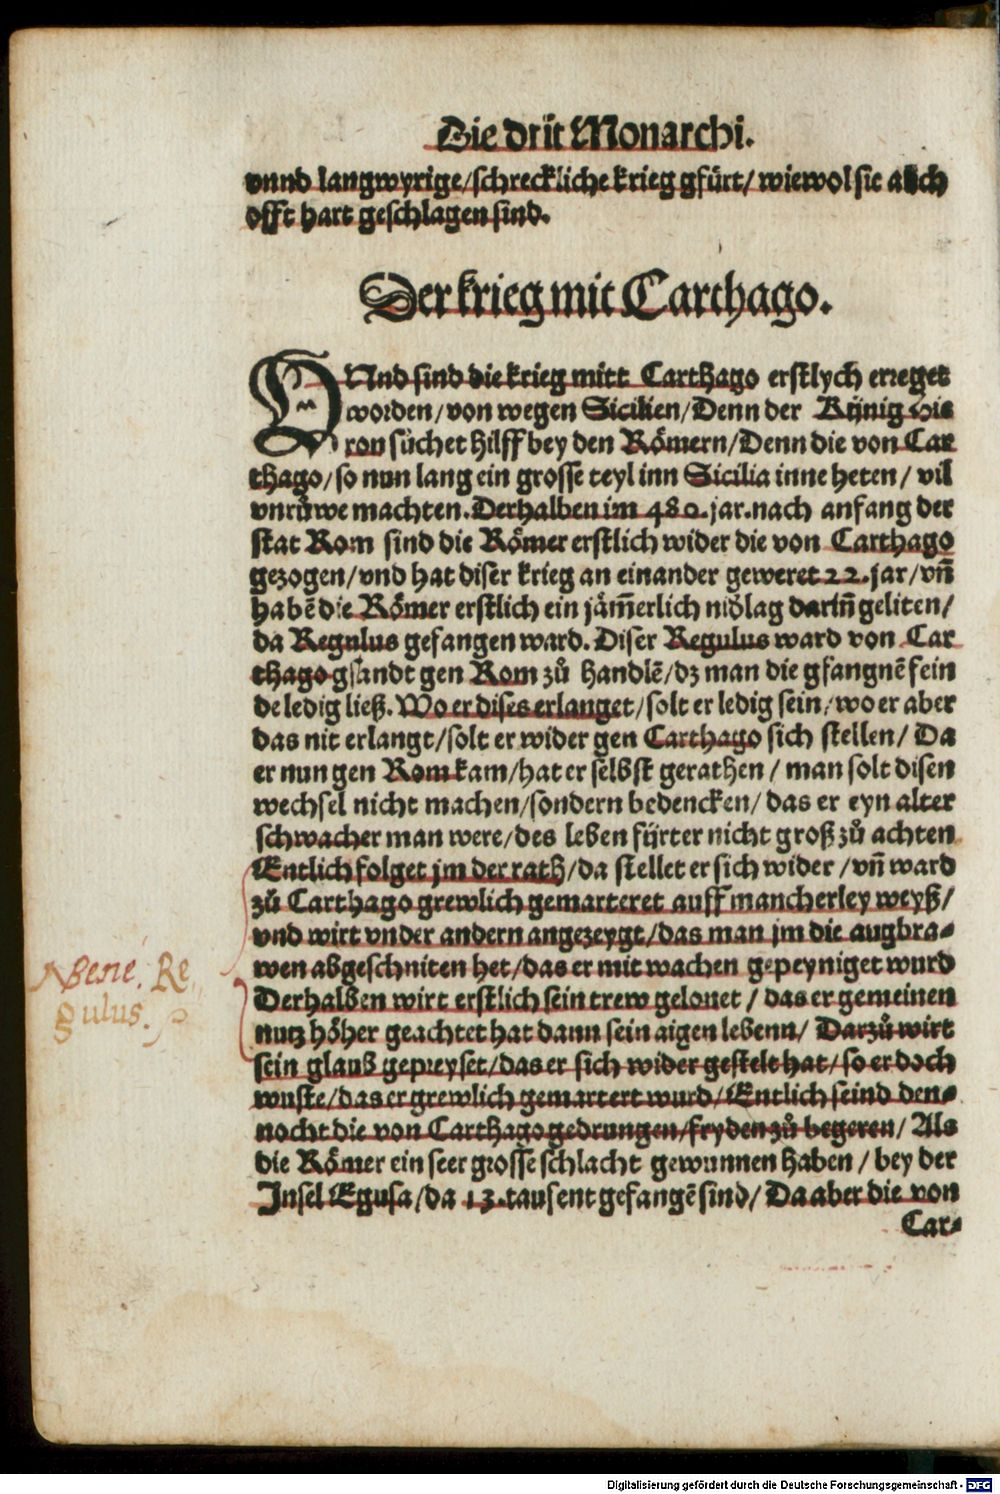 Die drit Monarchi.
vnnd langwyrige/schreckliche krieg gfürt/ wiewol sie auch
offt hart geschlagen sind.
Der krieg mit Carthago.
VNnd sind die krieg mitt Carthago erstlych erreget
worden/von wegen Sicilien/Denn der Künig Hie
ron sůchet hilff bey den Römern/Denn die von Car
thago/so nun lang ein grosse teyl inn Sicilia inne heten/ vil
vnrůwe machten. Derhalben im 480. jar. nach anfang der
stat Rom sind die Römer erstlich wider die von Carthago
gezogen/vnd hat diser krieg an einander geweret 22. jar/vñ
habē die Römer erstlich ein jäm̃erlich nidlag dariñ geliten/
da Regulus gefangen ward. Diser Regulus ward von Car
thago gsandt gen Rom zů handlē/dz man die gfangnē fein
de ledig ließ. Wo er dises erlanget/solt er ledig sein/wo er aber
das nit erlangt/solt er wider gen Carthago sich stellen/ Da
er nun gen Rom kam/hat er selbst gerathen / man solt disen
wechsel nicht machen/sondern bedencken/ das er eyn alter
schwacher man were/des leben fürter nicht groß zů achten
Entlich folget jm der rath/da stellet er sich wider /vñ ward
zů Carthago grewlich gemarteret auff mancherley weyß/
vnd wirt vnder andern angezeygt/das man jm die augbra-
wen abgeschniten het/das er mit wachen gepeyniget wurd
Derhalben wirt erstlich sein trew gelouet / das er gemeinen
nutz höher geachtet hat dann sein aigen lebenn/ Darzů wirt
sein glaub gepreyset/das er sich wider gestelt hat/so er doch
wuste/das er grewlich gemartert wurd/Entlich seind den-
nocht die von Carthago gedrungen/fryden zů begeren/ Als
die Römer ein seer grosse schlacht gewunnen haben / bey der
Jnsel Egusa/da 13. tausent gefangē sind/ Da aber die von
Car-
NBene. Re
gulus.
Digitalisierung gefördert durch die Deutsche Forschungsgemeinschaft - DFG